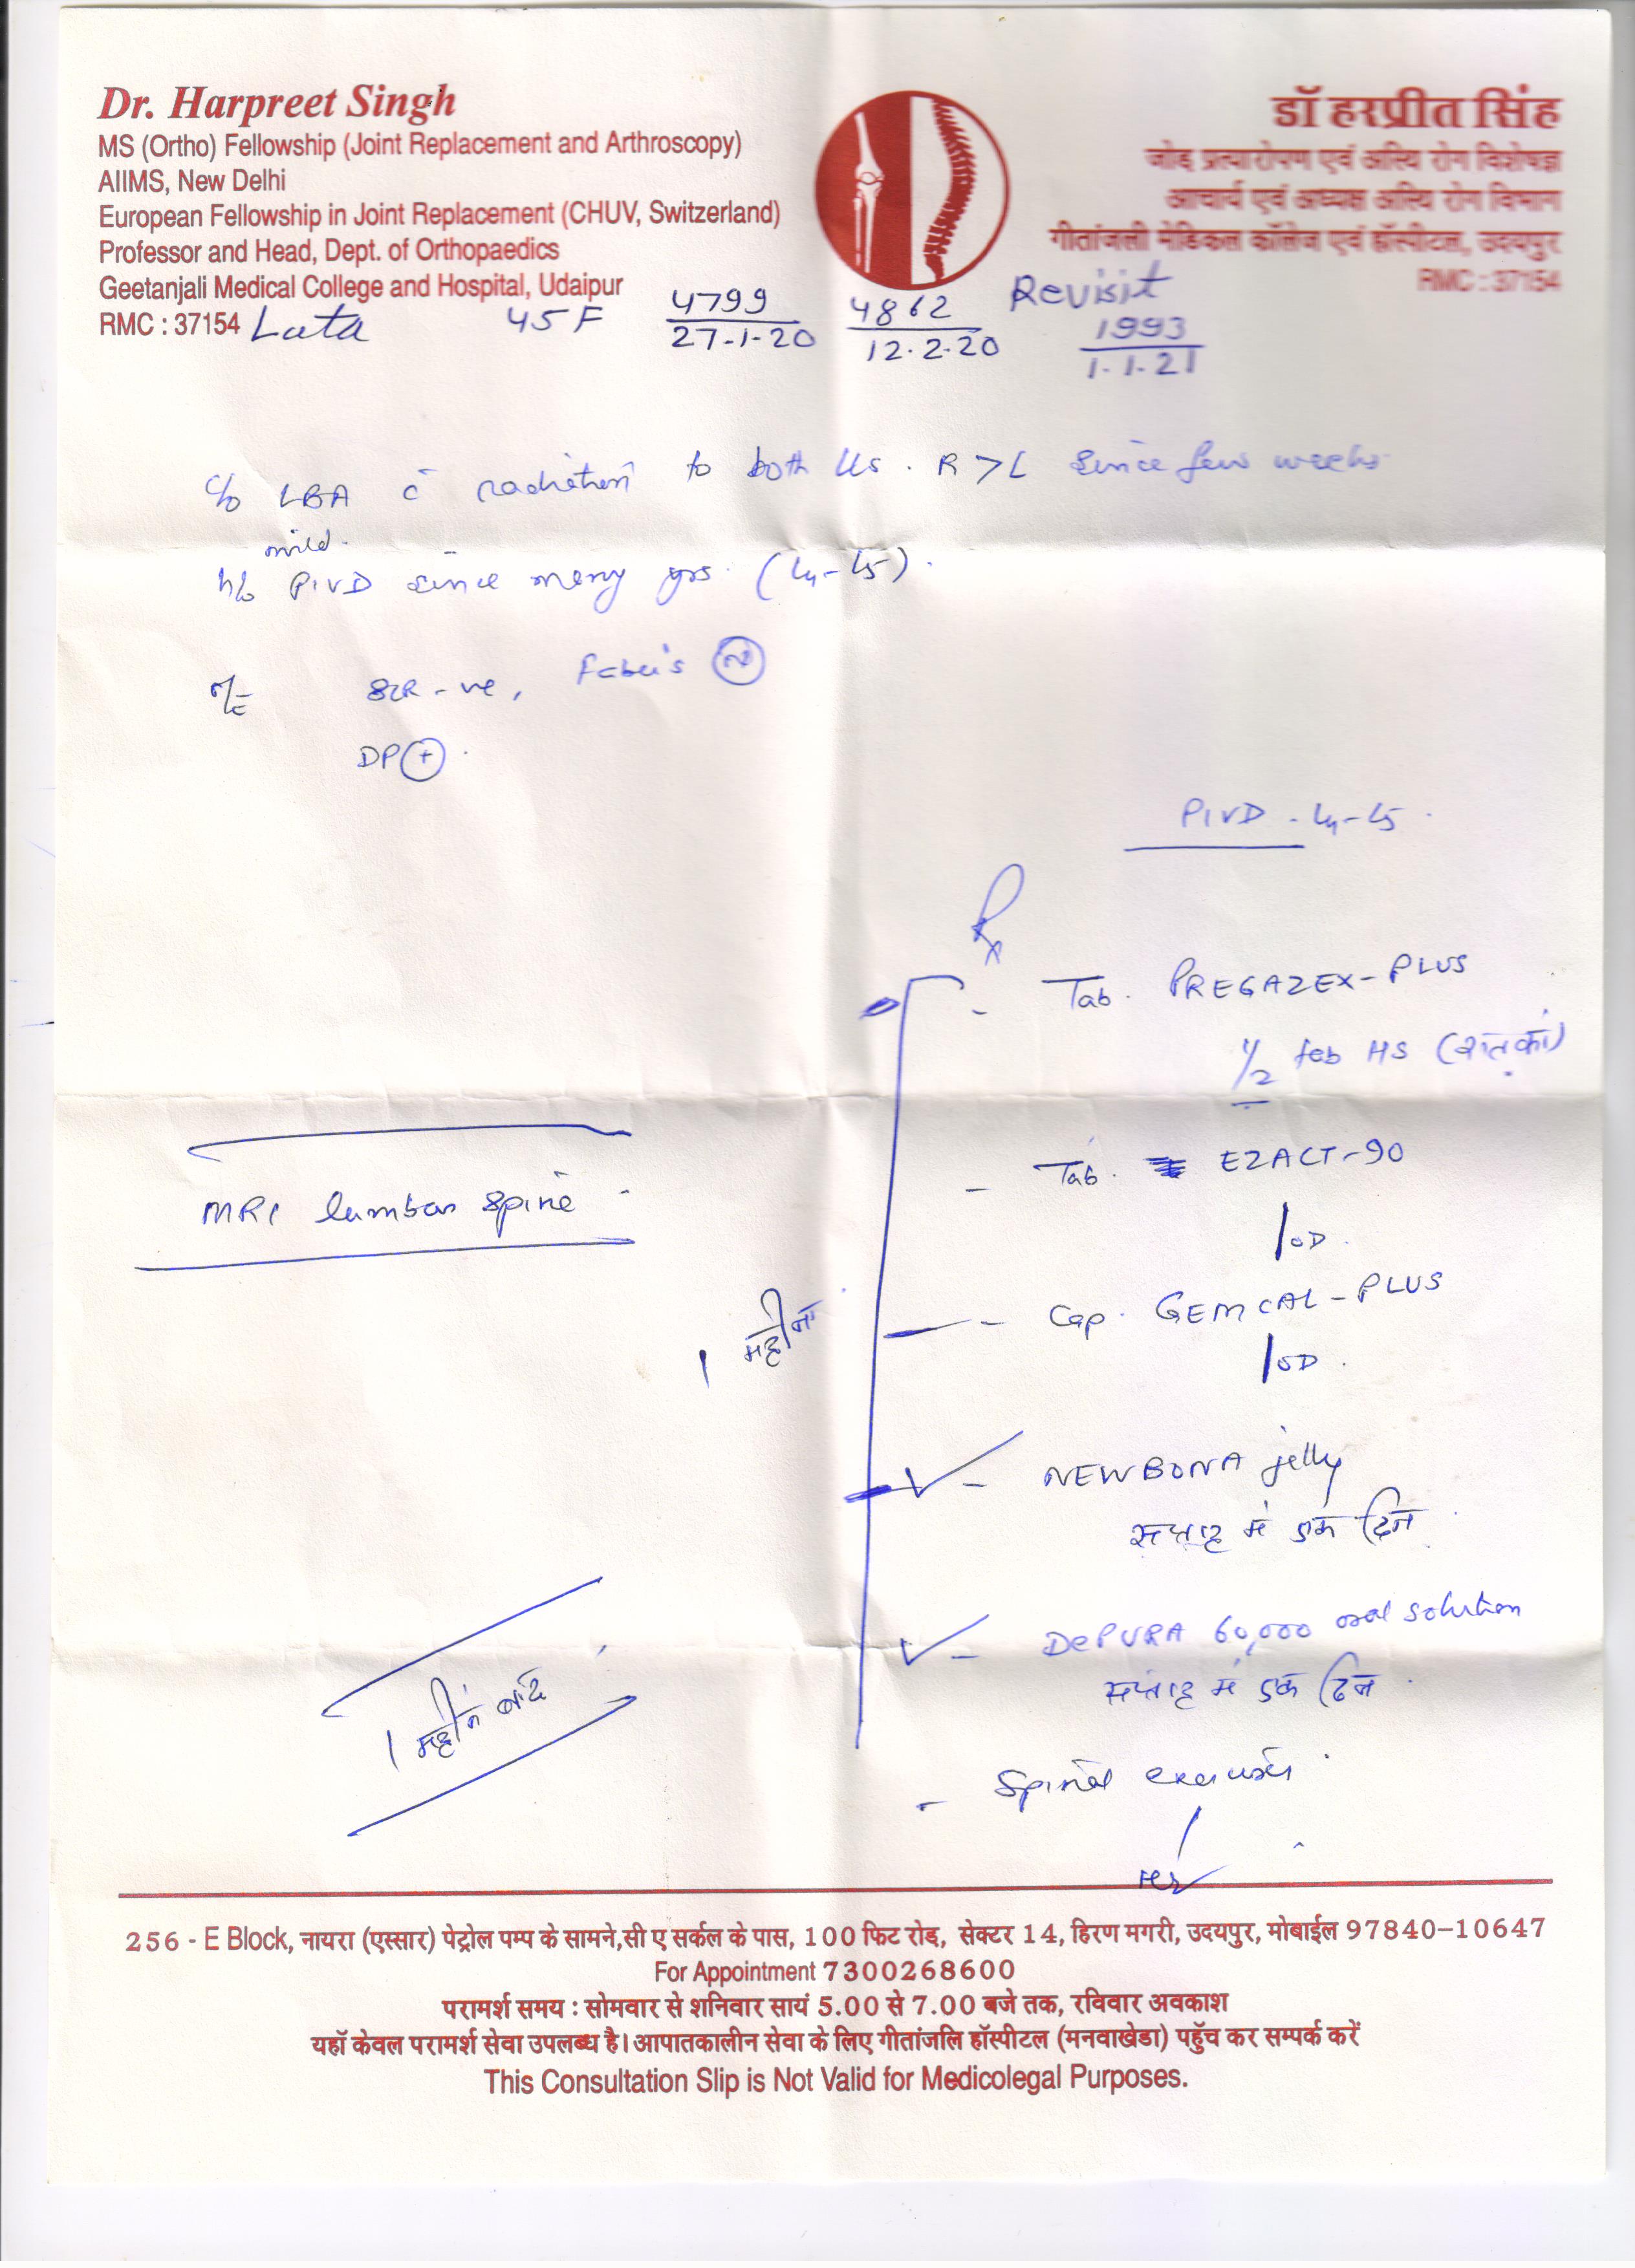 Dr. Harpreet Singh
MS (Ortho) Fellowship (Joint Replacement and Arthroscopy)
AIIMS, New Delhi
European Fellowship in Joint Replacement (CHUV, Switzerland)
Professor and Head, Dept. of Orthopaedics
Geetanjali Medical College and Hospital, Udaipur
RMC : 37154
डॉ हरप्रीत सिंह
जोड़ प्रत्यारोपण एवं अस्थि रोग विशेषज्ञ
आचार्य एवं अध्यक्ष अस्थि रोग विभाग
गीतांजली मेडिकल कॉलेज एवं हॉस्पीटल, उदयपुर
RMC : 37154
Lata 45 F 4799 4862 Revisit
27-1-20 12.2.20 1993
1.1.21
c/o LBA c̄ radiation to both LLs. R > L since few weeks
mild.
h/o PIVD since many yrs. (L4-L5).
O/E SLR -ve, Faber's N
DP +
PIVD - L4-L5.
Rx
- Tab. PREGAZEX-PLUS
1/2 tab HS (रात को)
- Tab. EZACT-90
1 OD.
MRI lumbar spine
- Cap. GEMCAL-PLUS
1 OD.
1 महीना
- NEWBONA jelly
सप्ताह में एक दिन
- DePURA 60,000 oral solution
सप्ताह में एक दिन
1 महीने बाद
- Spinal exercises
256 - E Block, नायरा (एस्सार) पेट्रोल पम्प के सामने,सी ए सर्कल के पास, 100 फिट रोड, सेक्टर 14, हिरण मगरी, उदयपुर, मोबाईल 97840-10647
For Appointment 7300268600
परामर्श समय : सोमवार से शनिवार सायं 5.00 से 7.00 बजे तक, रविवार अवकाश
यहाँ केवल परामर्श सेवा उपलब्ध है। आपातकालीन सेवा के लिए गीतांजलि हॉस्पीटल (मनवाखेडा) पहुँच कर सम्पर्क करें
This Consultation Slip is Not Valid for Medicolegal Purposes.